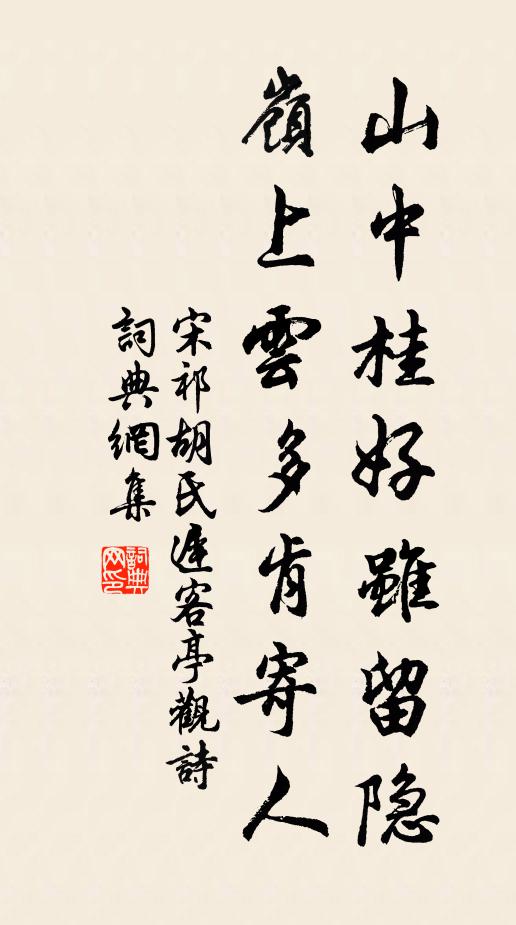 山中桂好雖留隐
嶺上雲多肯寄人
宋祁胡氏遲客亭觀詩
詞典網集
詞典网印